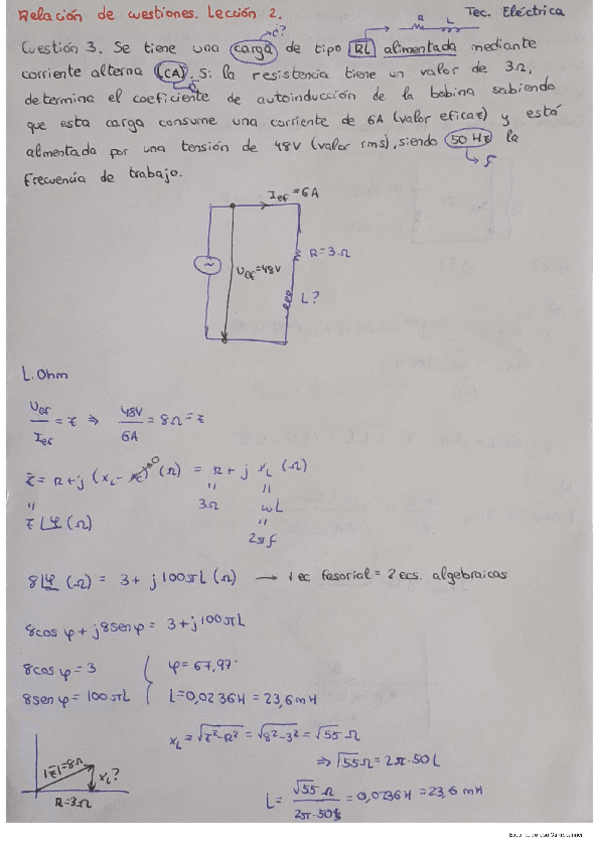 Relación de cuestiones. Lección 2.
Tec. Eléctrica
R L
¿?
Cuestión 3. Se tiene una carga de tipo RL alimentada mediante
corriente alterna (CA). Si la resistencia tiene un valor de 3Ω,
determina el coeficiente de autoinducción de la bobina sabiendo
que esta carga consume una corriente de 6A (valor eficaz) y está
alimentada por una tensión de 48V (valor rms), siendo 50 Hz la
frecuencia de trabajo.
f
Ief = 6A
R = 3Ω
Uef = 48V
L?
L. Ohm
Uef/Ief = Z ⇒ 48V/6A = 8Ω = Z
Z̄ = R + j (XL - Xc)⁰ (Ω) = R + j XL (Ω)
" " "
3Ω ωL
Z∠φ (Ω) "
2πf
8∠φ (Ω) = 3 + j100πL (Ω) → 1 ec fasorial = 2 ecs. algebraicas
8cos φ + j8sen φ = 3 + j100πL
8cos φ = 3 φ = 67,97º
8sen φ = 100πL L = 0,0236H = 23,6 mH
XL = √Z²-R² = √8²-3² = √55 Ω
⇒ √55Ω = 2π·50L
|Z̄| = 8Ω XL?
R = 3Ω
L = √55 Ω / 2π·50 = 0,0236H = 23,6 mH